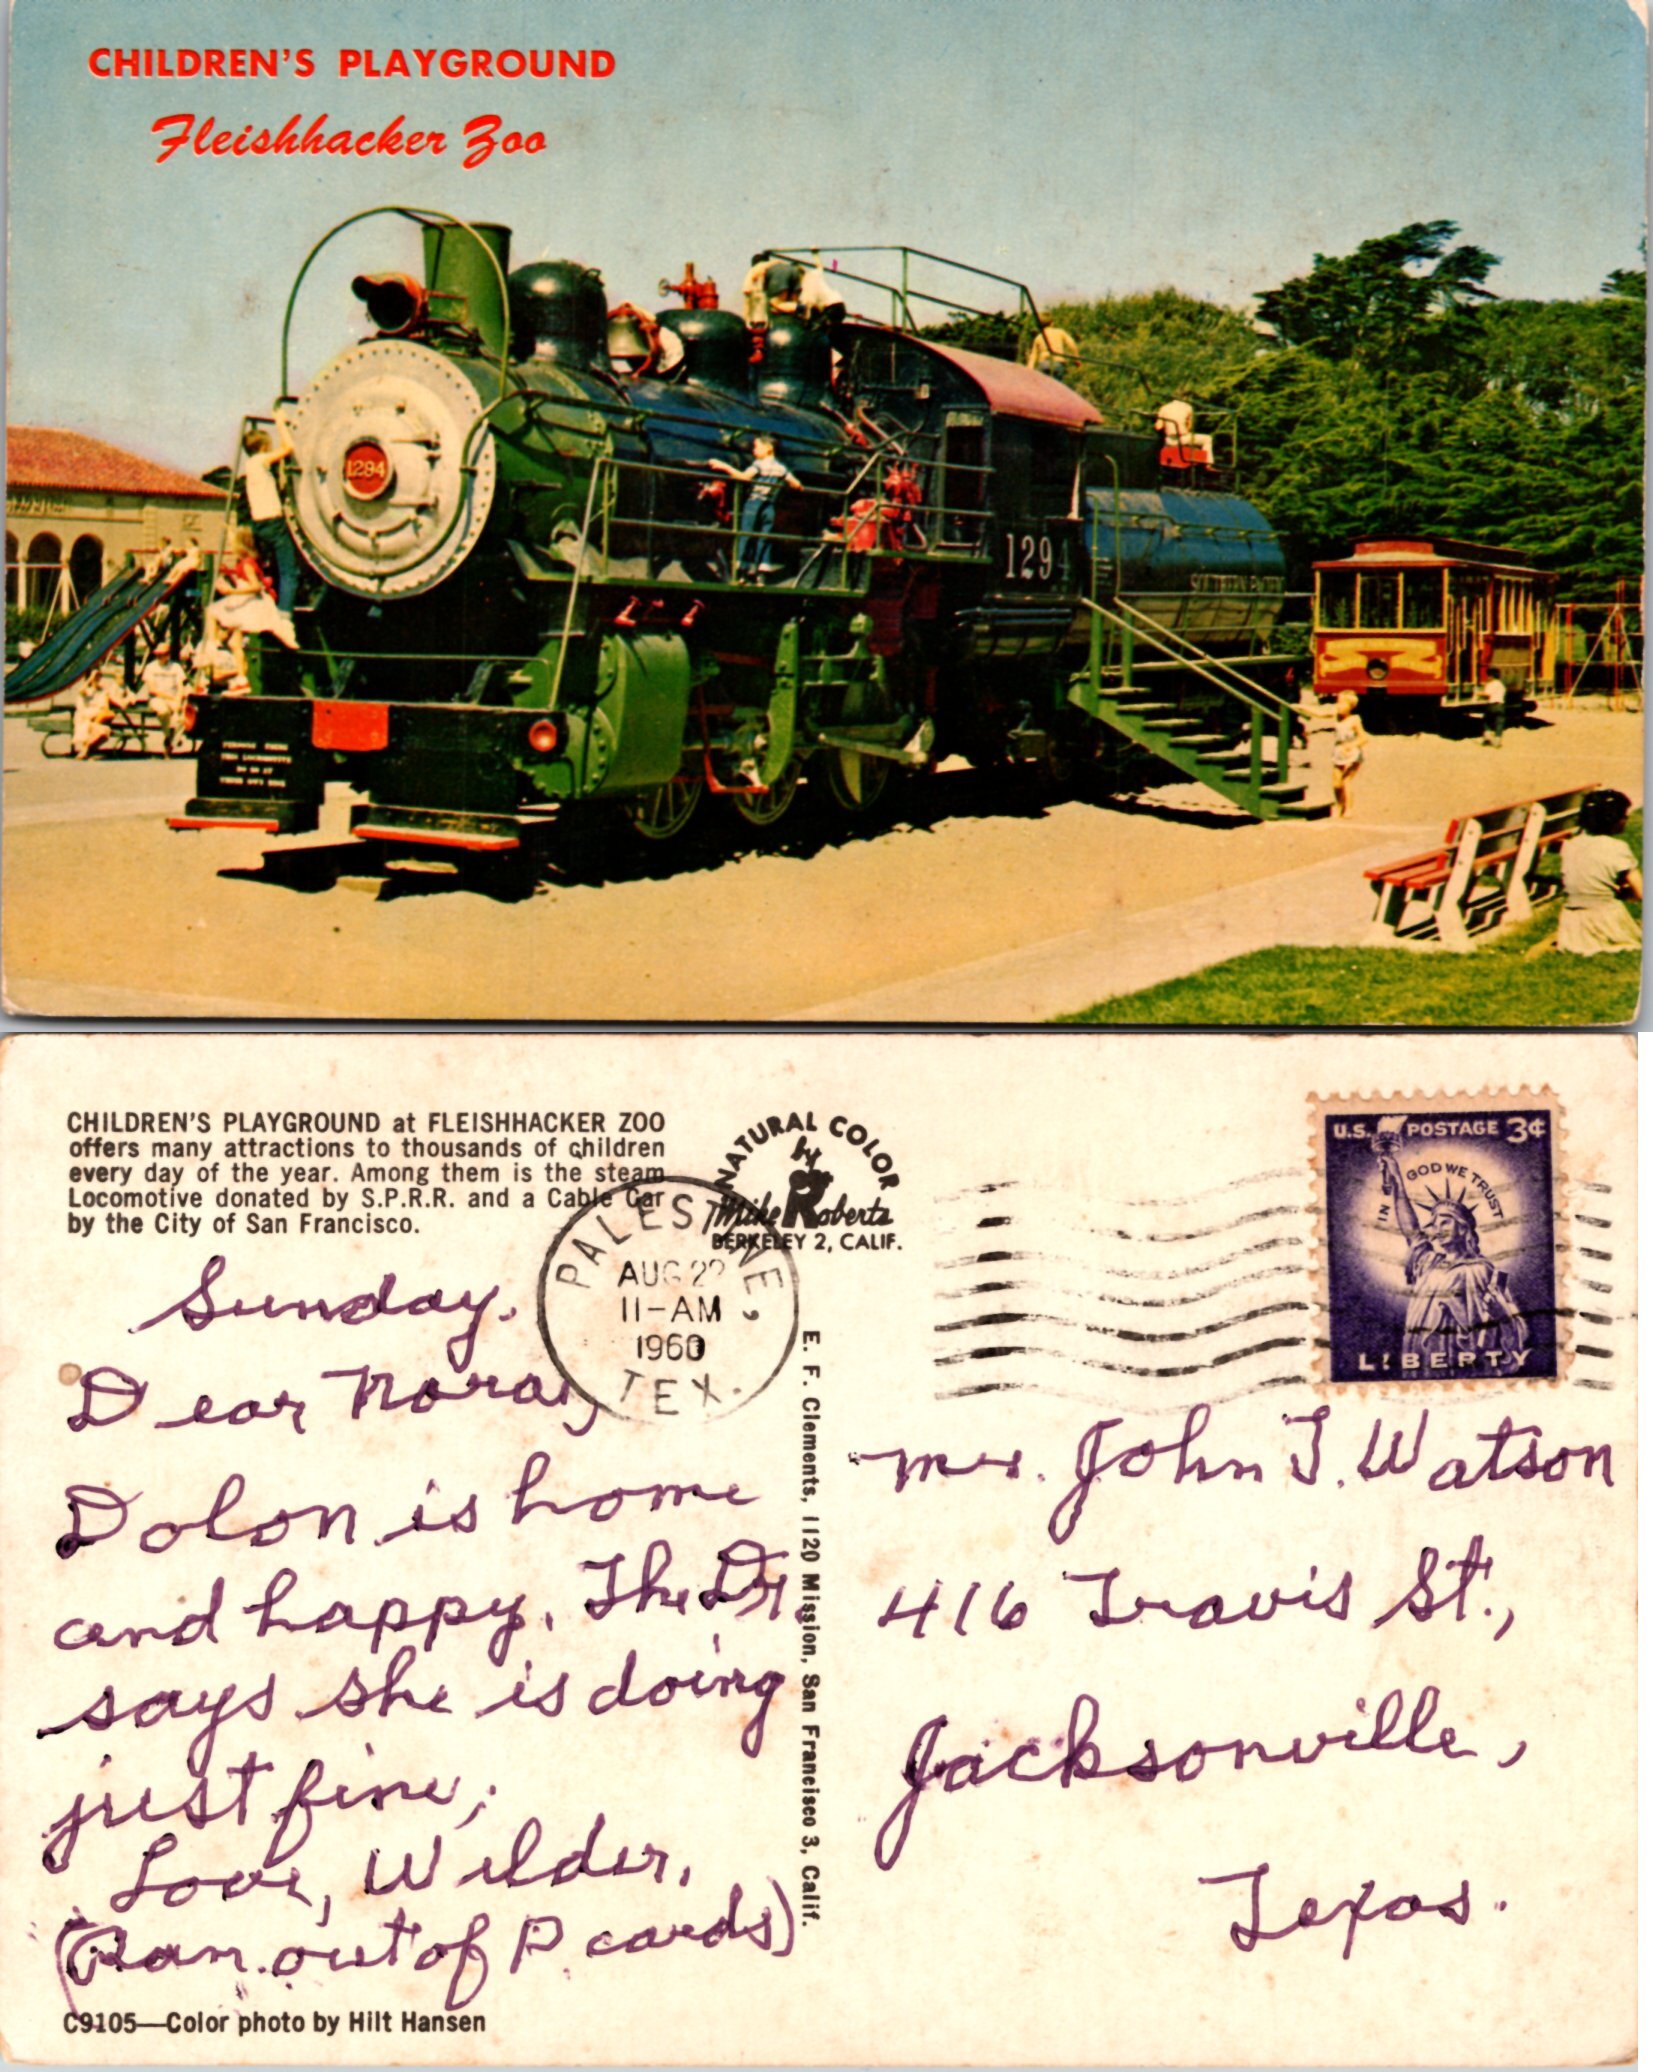 CHILDREN'S PLAYGROUND
Fleishhacker Zoo
1294
1294
SOUTHERN PACIFIC
CHILDREN'S PLAYGROUND at FLEISHHACKER ZOO
offers many attractions to thousands of children
every day of the year. Among them is the steam
Locomotive donated by S.P.R.R. and a Cable Car
by the City of San Francisco.
NATURAL COLOR
by
Mike Roberts
BERKELEY 2, CALIF.
PALESTINE,
AUG 22
11-AM
1960
TEX.
U.S. POSTAGE 3¢
IN GOD WE TRUST
LIBERTY
Sunday.
Dear Nora,
Dolon is home
and happy. The Dr.
says she is doing
just fine;
Love, Wilder.
(Ran out of P cards)
C9105—Color photo by Hilt Hansen
E. F. Clements, 1120 Mission, San Francisco 3, Calif.
Mrs. John T. Watson
416 Travis St.,
Jacksonville,
Texas.